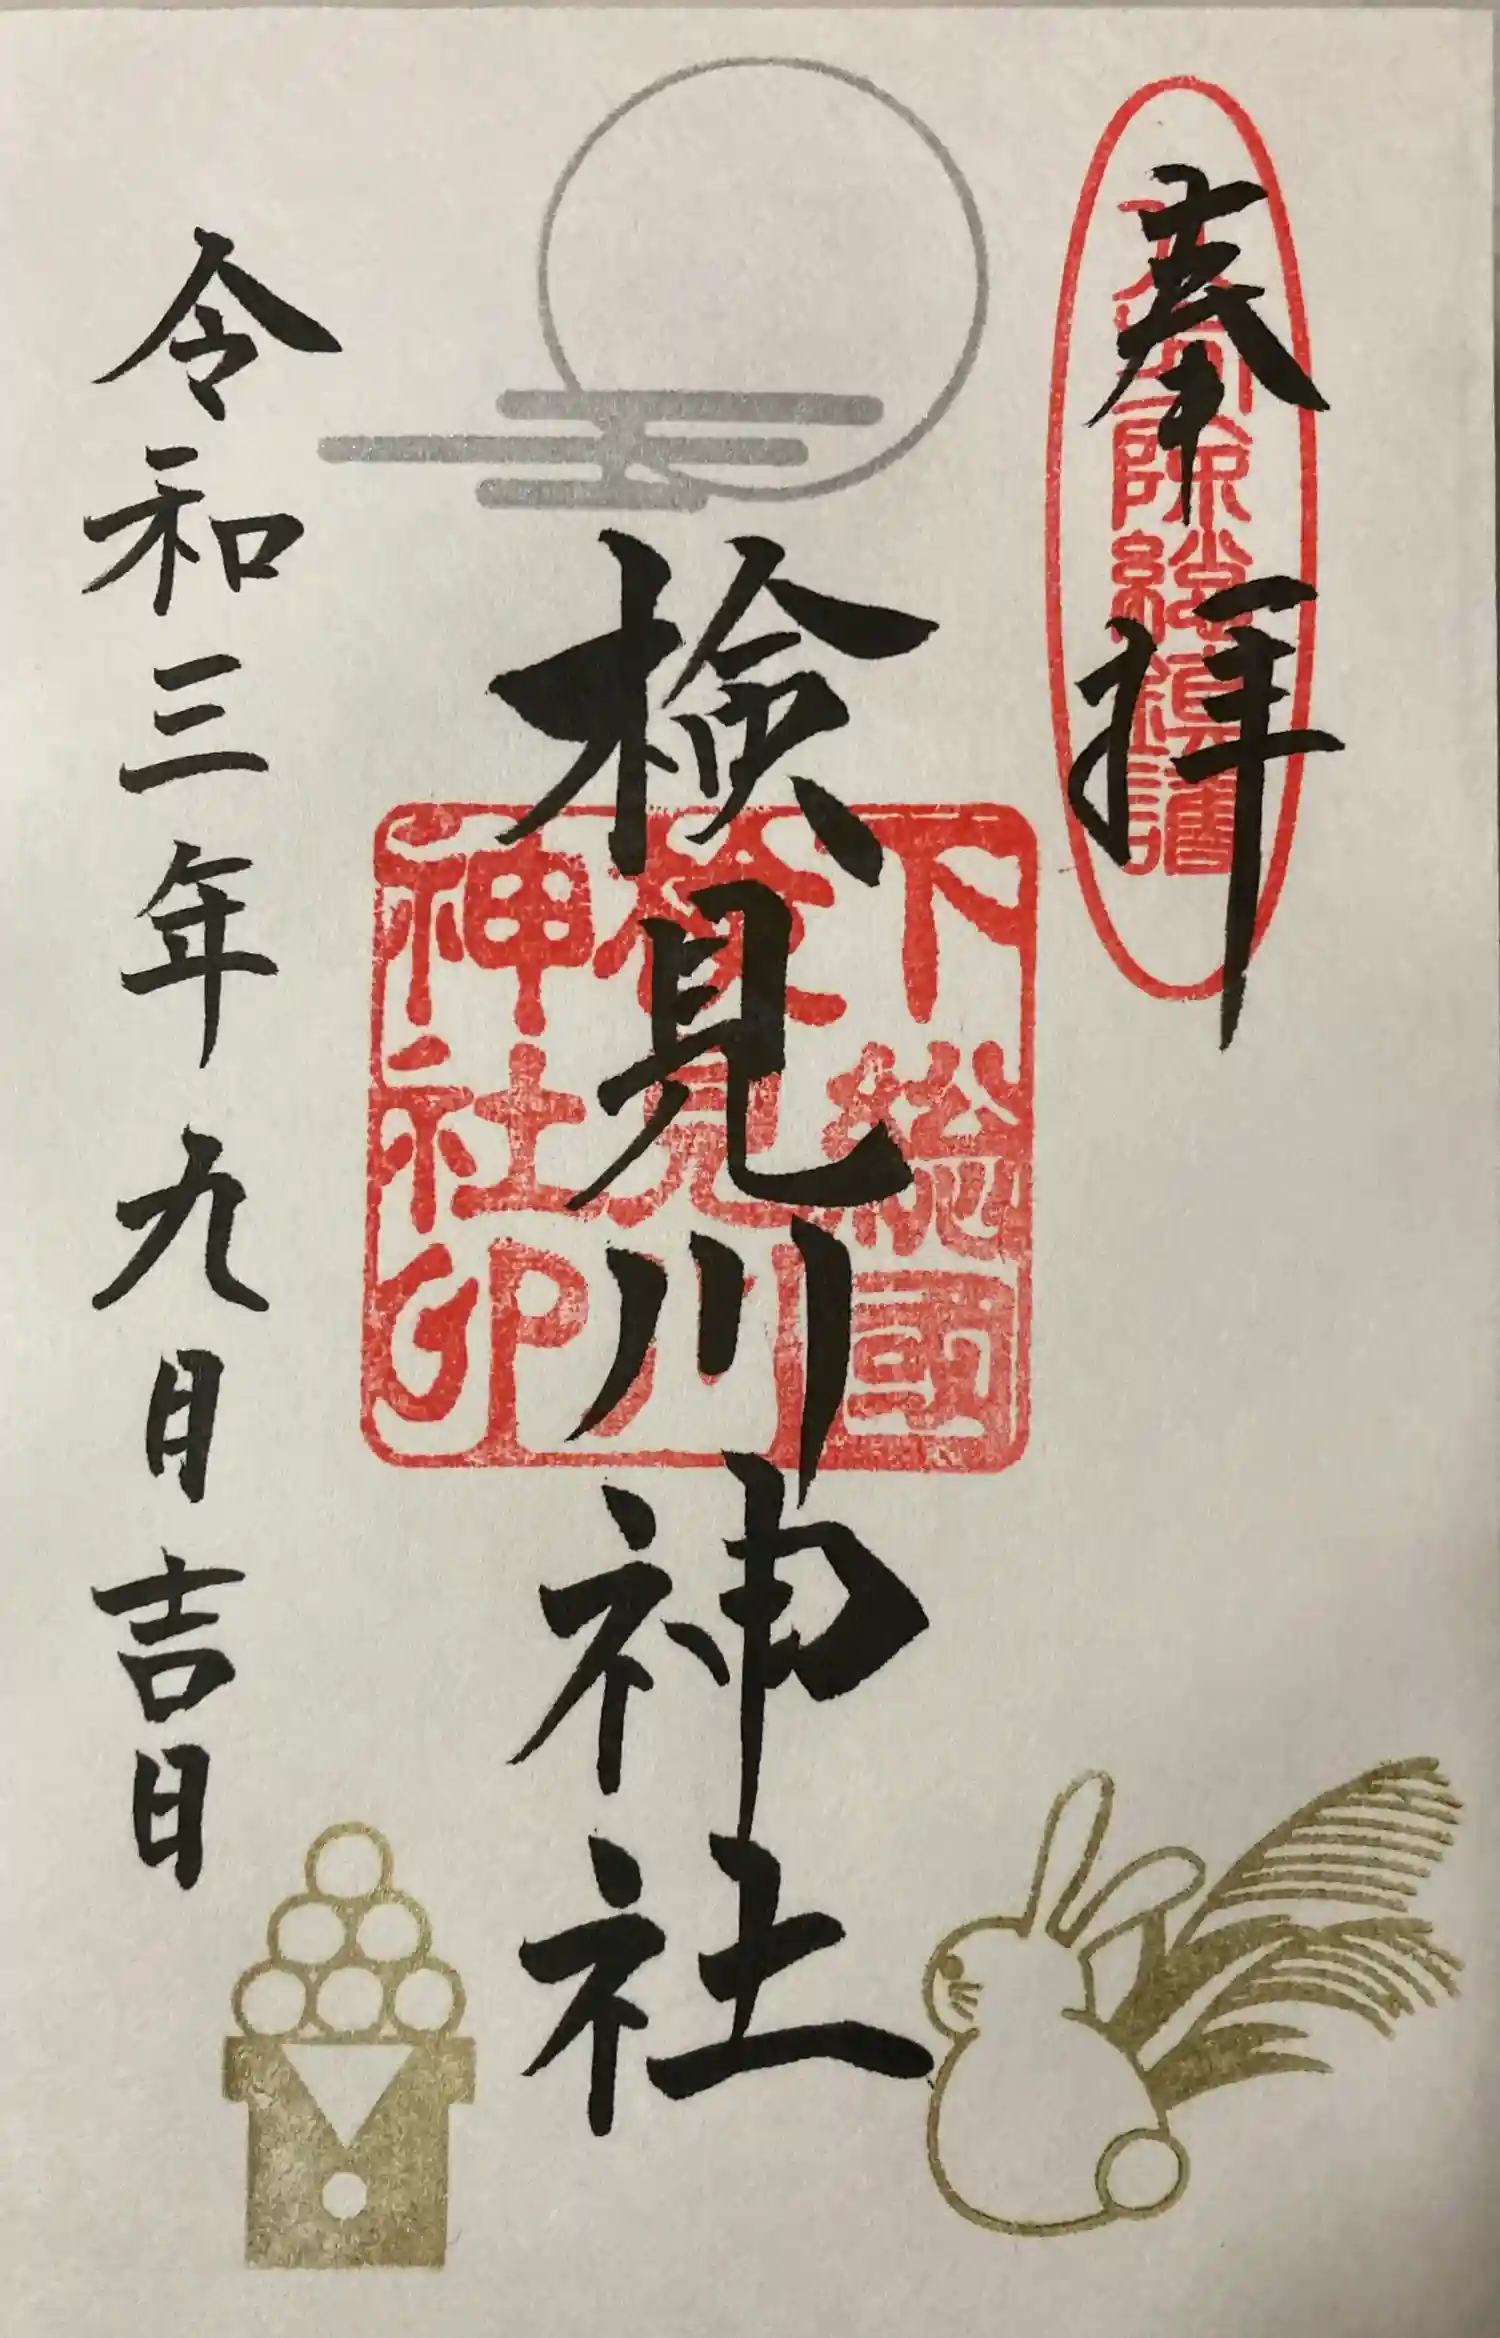 奉拝
八方除総鎮護
検見川神社
下総國
検見川
神社印
令和三年九月吉日